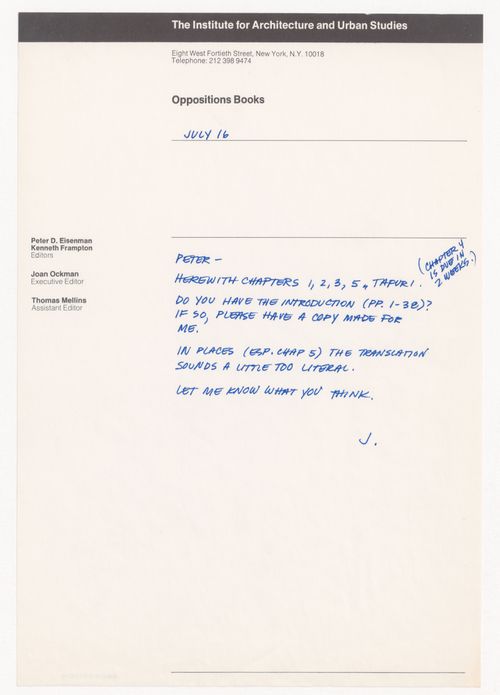 The Institute for Architecture and Urban Studies
Eight West Fortieth Street, New York, N.Y. 10018
Telephone: 212 398 9474
Oppositions Books
JULY 16
Peter D. Eisenman
Kenneth Frampton
Editors
Joan Ockman
Executive Editor
Thomas Mellins
Assistant Editor
PETER –
(CHAPTER 4
IS DUE IN
2 WEEKS.)
HEREWITH CHAPTERS 1, 2, 3, 5, TAFURI.
DO YOU HAVE THE INTRODUCTION (PP. 1-38)?
IF SO, PLEASE HAVE A COPY MADE FOR
ME.
IN PLACES (ESP. CHAP 5) THE TRANSLATION
SOUNDS A LITTLE TOO LITERAL.
LET ME KNOW WHAT YOU THINK.
J.